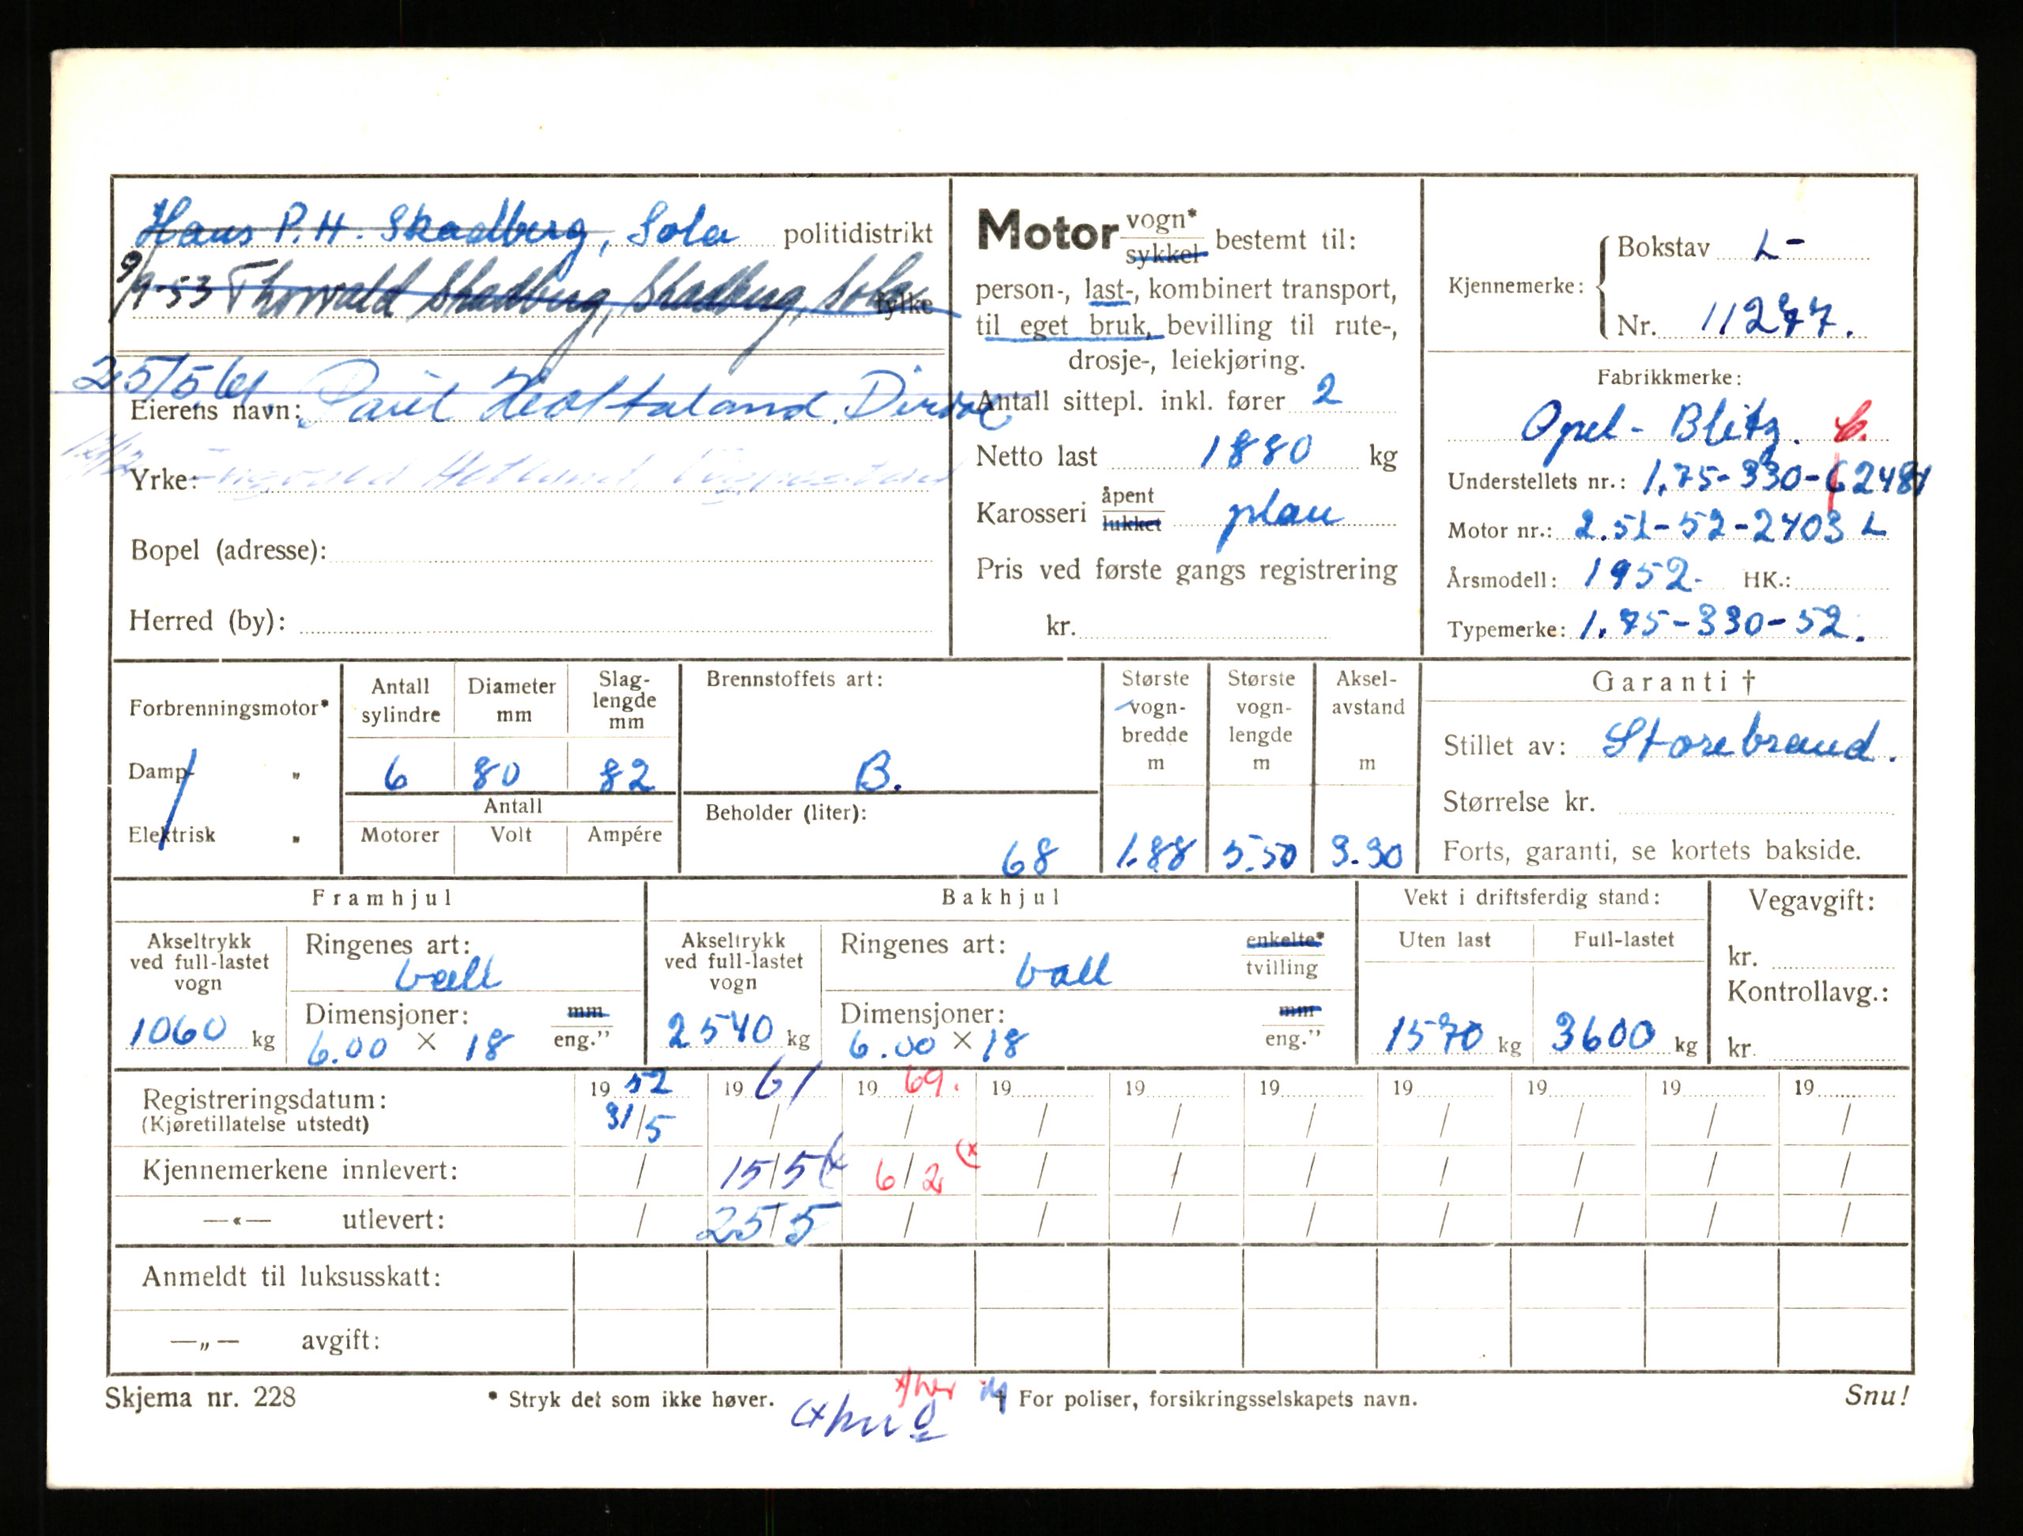 Hans P.H. Skadberg, Sola politidistrikt
9/9-53 Thorvald Skadberg, Skadberg, Sola fylke
25/5 61
Eierens navn: Paul Dirdal
Yrke:
Bopel (adresse):
Herred (by):
Motor vogn* sykkel bestemt til:
person-, last-, kombinert transport,
til eget bruk, bevilling til rute-,
drosje-, leiekjøring.
Antall sittepl. inkl. fører 2
Netto last 1880 kg
Karosseri åpent lukket plan
Pris ved første gangs registrering
kr.
Kjennemerke: Bokstav L-
Nr. 11277.
Fabrikkmerke:
Opel-Blitz.
Understellets nr.: 1.75-330-
Motor nr.: 2.5L-52-2403 L
Årsmodell: 1952- HK.:
Typemerke: 1.75-330-52.
Forbrenningsmotor*
Damp- „
Elektrisk „
Antall sylindre
Diameter mm
Slag-lengde mm
6 80 82
Antall
Motorer Volt Ampére
Brennstoffets art:
B.
Beholder (liter):
68
Største vogn-bredde m
1.88
Største vogn-lengde m
5.50
Aksel-avstand m
3.30
Garanti †
Stillet av: Storebrand.
Størrelse kr.
Forts, garanti, se kortets bakside.
Framhjul
Akseltrykk ved full-lastet vogn
1060 kg
Ringenes art:
ball
Dimensjoner: mm
6.00 × 18 eng."
Bakhjul
Akseltrykk ved full-lastet vogn
2540 kg
Ringenes art: enkelte*
ball tvilling
Dimensjoner: mm
6.00 × 18 eng."
Vekt i driftsferdig stand:
Uten last Full-lastet
1570 kg 3600 kg
Vegavgift:
kr.
Kontrollavg.:
kr.
Registreringsdatum: 19 52 19 61 19 69. 19 19 19 19 19 19 19
(Kjøretillatelse utstedt) 31/5 / / / / / / / / /
Kjennemerkene innlevert: / 15/5 (x 6/2 (x / / / / / / /
—«— utlevert: / 25/5 / / / / / / / /
Anmeldt til luksusskatt:
—„— avgift:
Skjema nr. 228
* Stryk det som ikke høver.
† For poliser, forsikringsselskapets navn.
Snu!